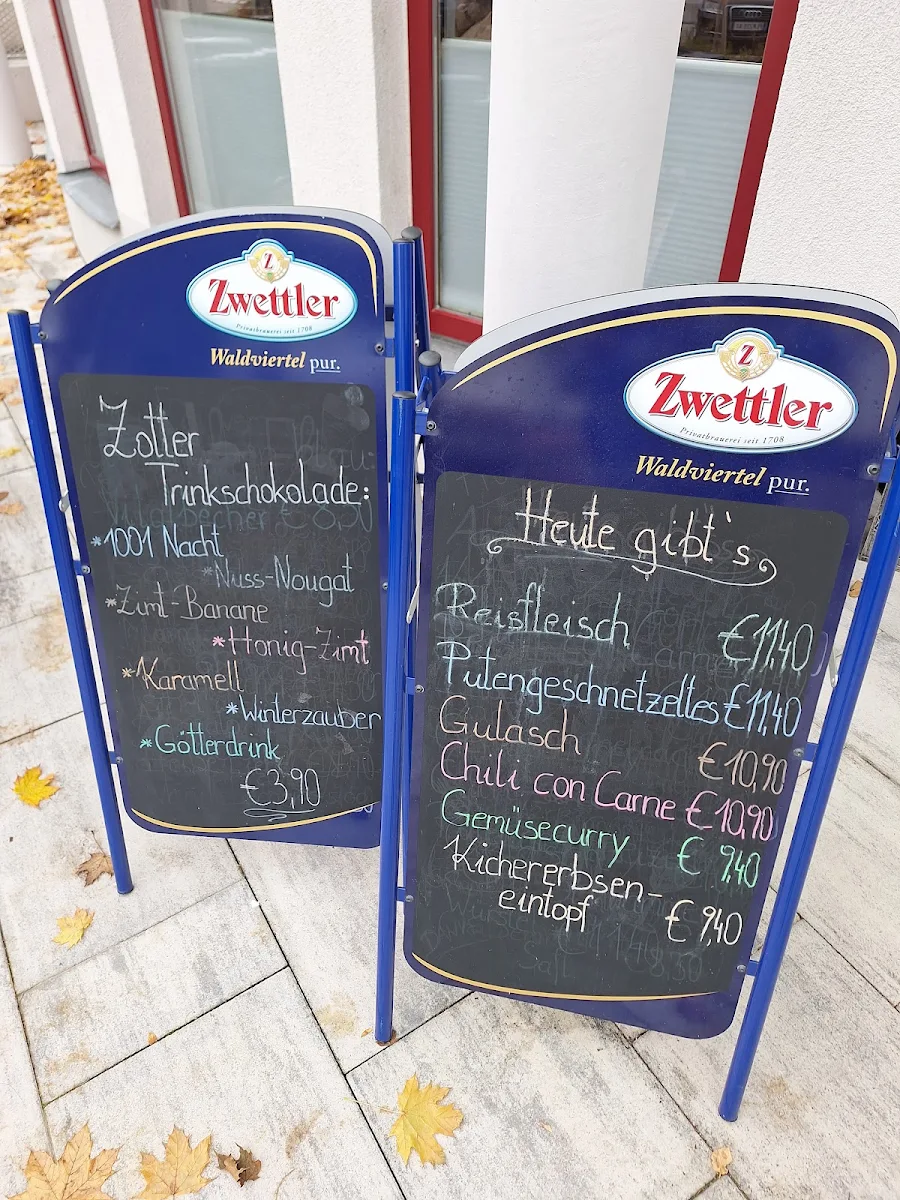 Zwettler
Privatbrauerei seit 1708
Waldviertel pur.
Zotter
Trinkschokolade:
*1001 Nacht
*Nuss-Nougat
*Zimt-Banane
*Honig-Zimt
*Karamell
*Winterzauber
*Götterdrink
€3,90
Z
Zwettler
Privatbrauerei seit 1708
Waldviertel pur.
Heute gibt`s
Reisfleisch €11,40
Putengeschnetzeltes €11,40
Gulasch €10,90
Chili con Carne €10,90
Gemüsecurry € 9,40
Kichererbsen-
eintopf € 9,40